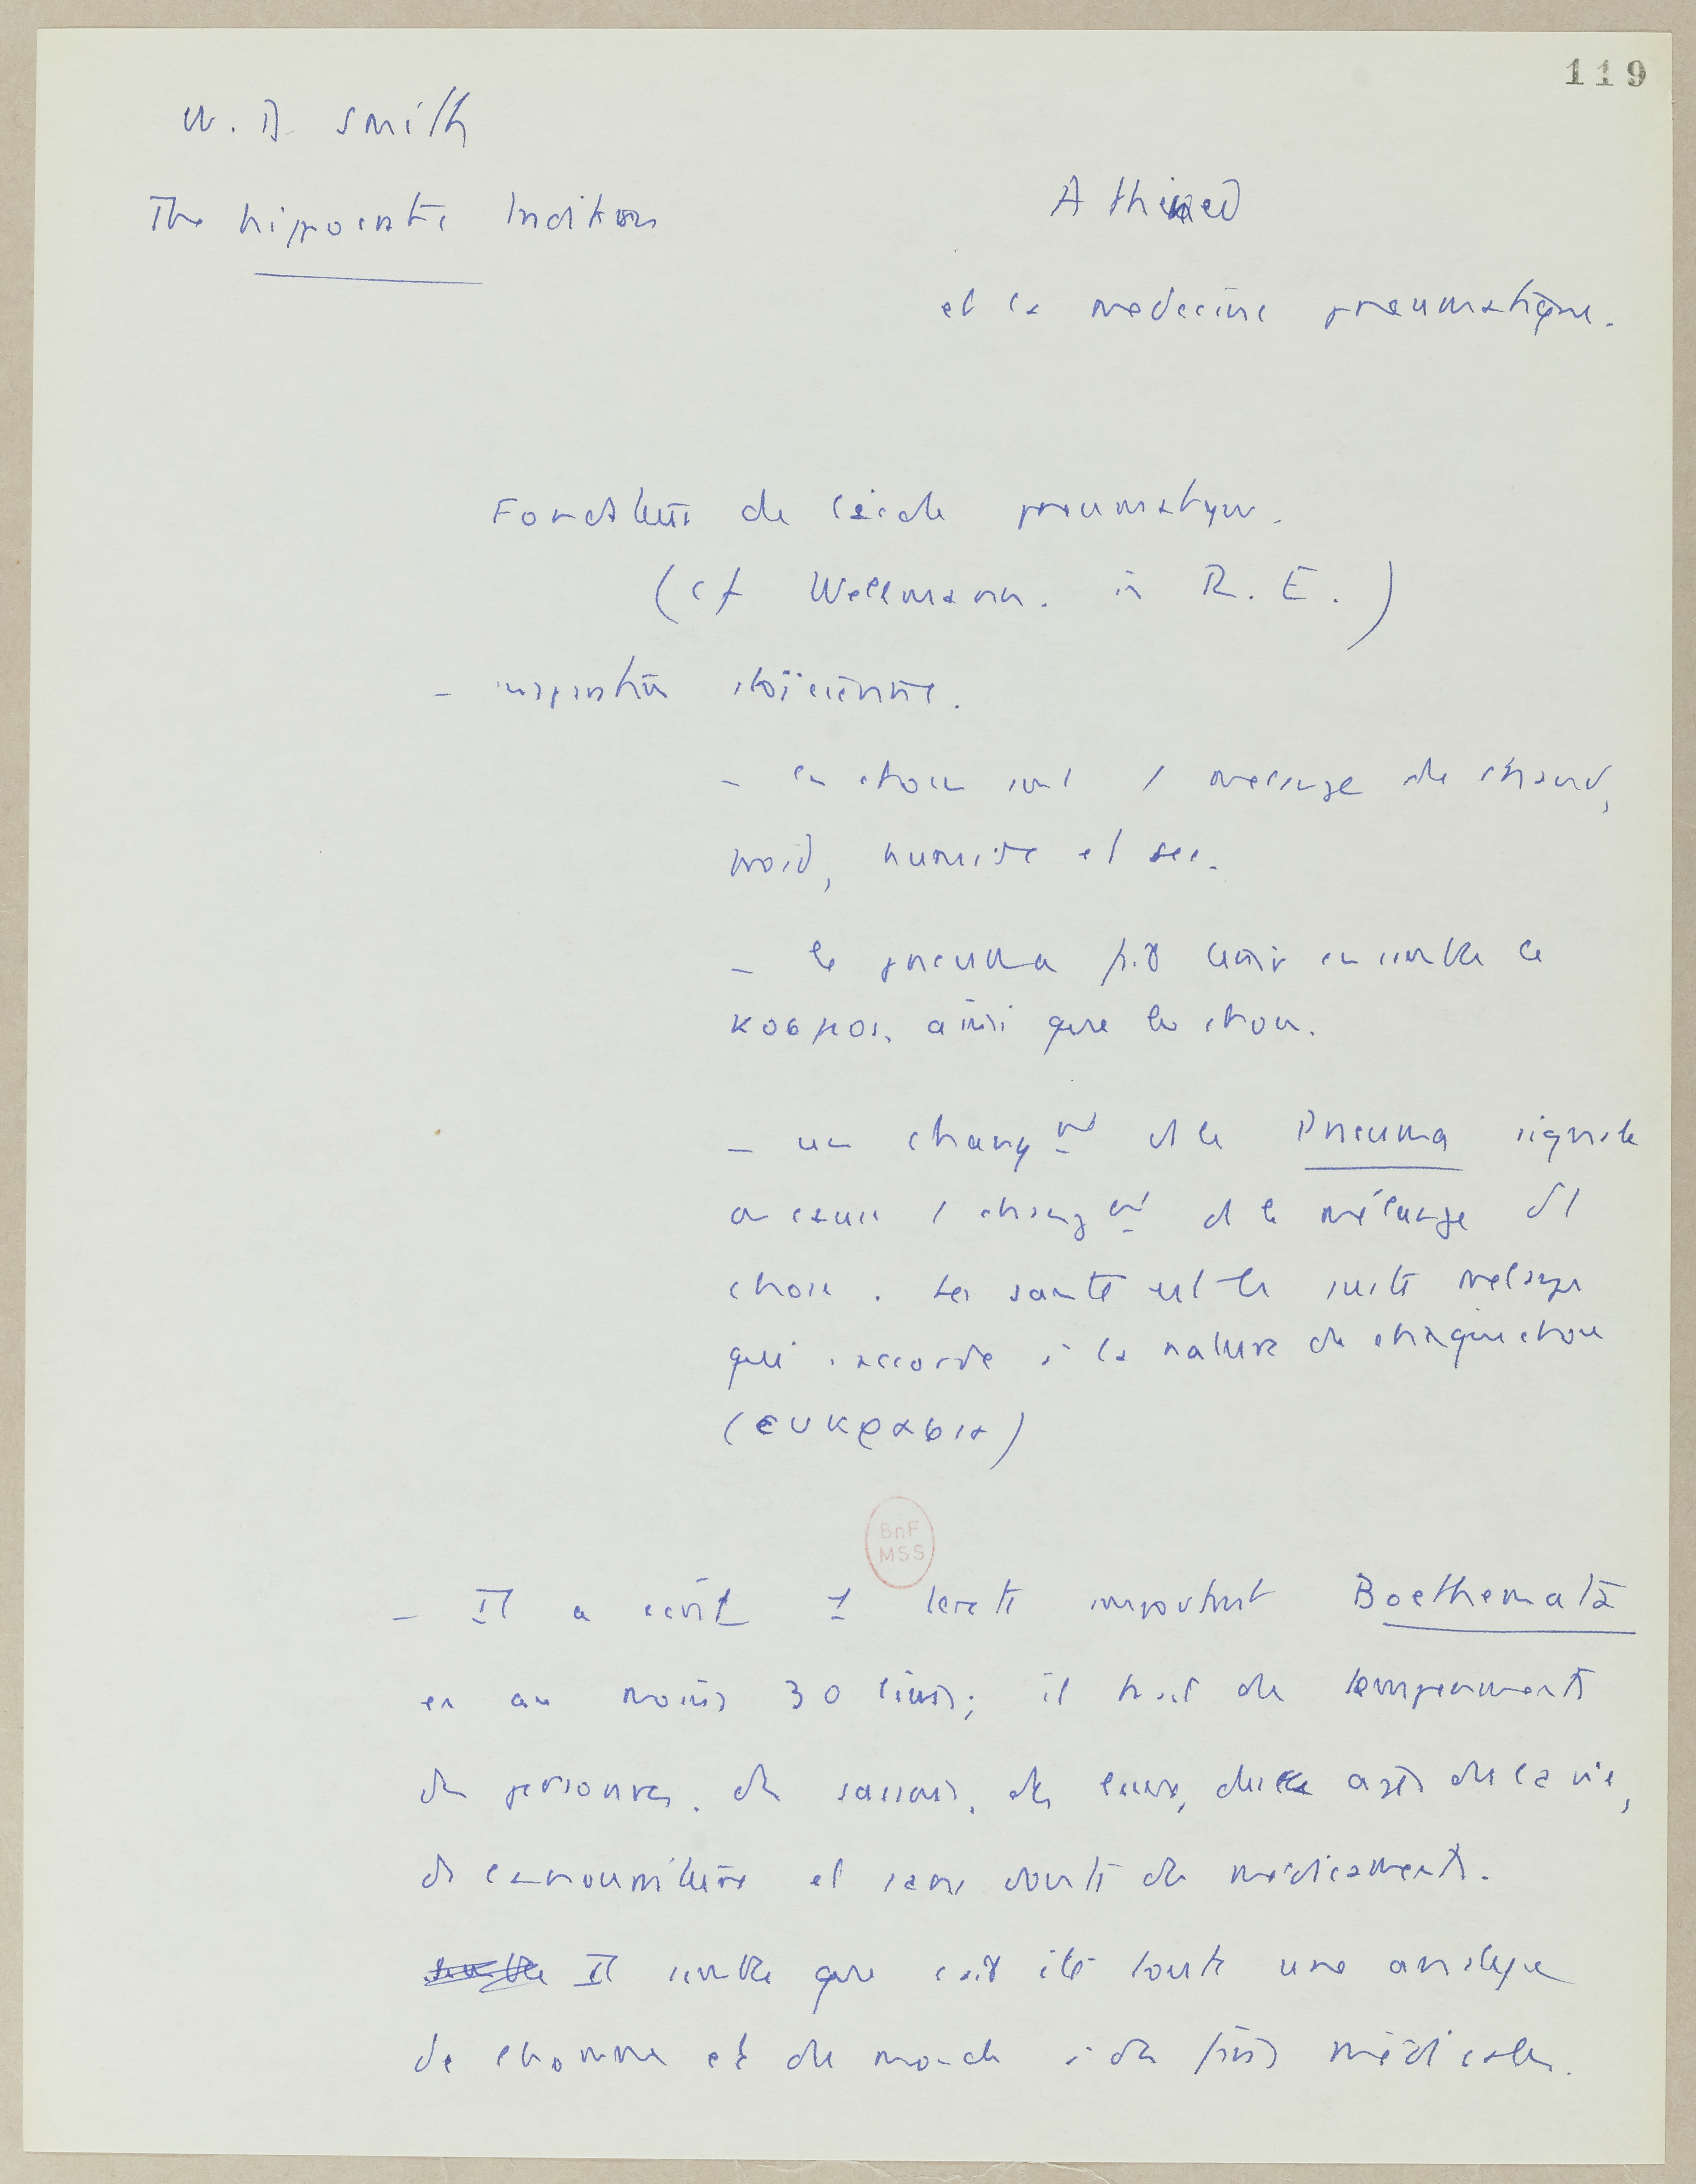 119
W. D. Smith
The hippocratic tradition
Athénée
et la médecine pneumatique.
Fondateur de l'école pneumatique.
(cf Wellmann. in R. E.)
- inspiration stoïcienne.
- les choses sont 1 mélange de chaud,
froid, humide et sec.
- le pneuma fait tenir ensemble le
κοσμος, ainsi que les choses.
- un changmt ds le Pneuma signale
ou cause 1 changmt ds le mélange ds
choses. La santé est le juste mélange
qui s'accorde à la nature de chaque chose
(ευκρασια)
- Il a écrit 1 texte important Boethemata
en au moins 30 livres; il trait des tempéraments
des personnes, des saisons, des lieux, des âges de la vie,
ds la nourriture et sans doute des médicaments.
Il semble que c'ait été toute une analyse
de l'homme et du monde à des fins médicales.
BnF
MSS